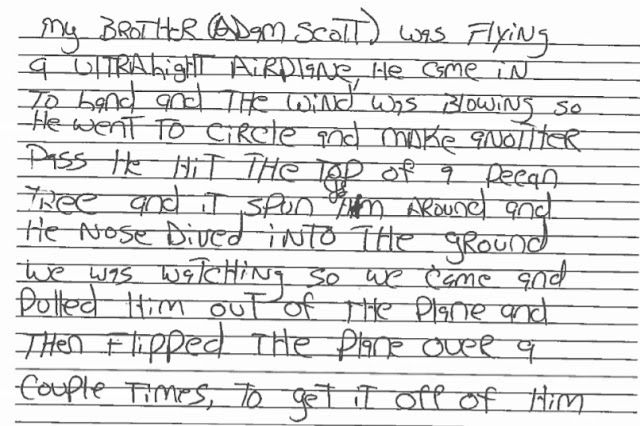 My BROTHER (ADAM SCOTT) was Flying
a UlTRALighT AiRplane, He came iN
To Land and THe WiNd was Blowing so
He went To CiRcle and make anoTHER
Pass He HiT THe Top of a Pecan
TRee and iT spun Him ARound and
He Nose Dived iNTO THe ground
We was waTCHing so we came and
Pulled Him ouT of THe Plane and
THen Flipped THe Plane over a
Couple Times, To geT iT off of Him